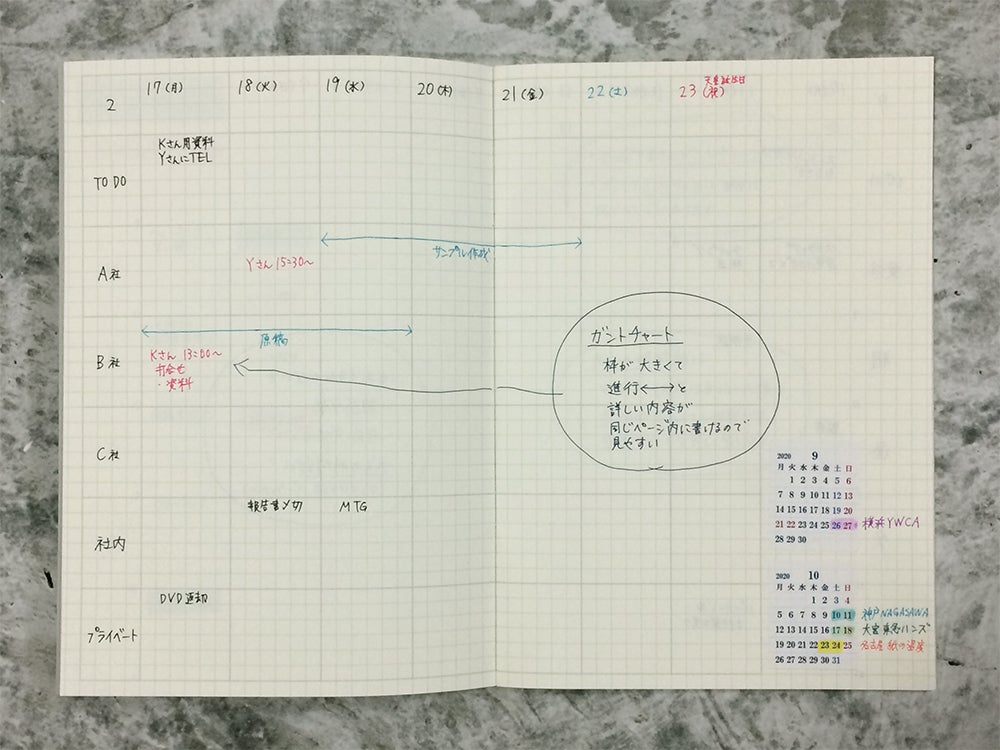 2
17(月) 18(火) 19(水) 20(木) 21(金) 22(土) 23(祝)
天皇誕生日
TO DO
Kさん用資料
YさんにTEL
A社
Yさん 15:30〜
サンプル作成
B社
原稿
Kさん 13:00〜
打合せ
・資料
ガントチャート
枠が大きくて
進行←→と
詳しい内容が
同じページ内に書けるので
見やすい
C社
社内
報告書〆切
MTG
プライベート
DVD返却
2020 9
月 火 水 木 金 土 日
1 2 3 4 5 6
7 8 9 10 11 12 13
14 15 16 17 18 19 20
21 22 23 24 25 26 27 横浜YWCA
28 29 30
2020 10
月 火 水 木 金 土 日
1 2 3 4
5 6 7 8 9 10 11 神戸NAGASAWA
12 13 14 15 16 17 18 大宮東急ハンズ
19 20 21 22 23 24 25 名古屋 紙の温度
26 27 28 29 30 31